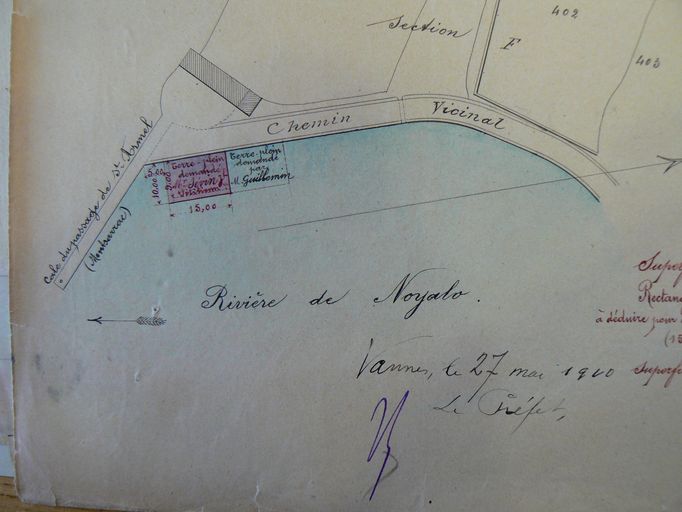 Section
F
402
403
Chemin Vicinal
Cale du passage de St Armel
(Montsarrac)
Terre-plein
demandé
Terre-plein
demandé
par
M. Guillemin
5.00
10.00
15,00
Rivière de Noyalo.
Vannes, le 27 mai 1910
Le Préfet,
Superf
Rectan
à déduire pour
(15
Superf